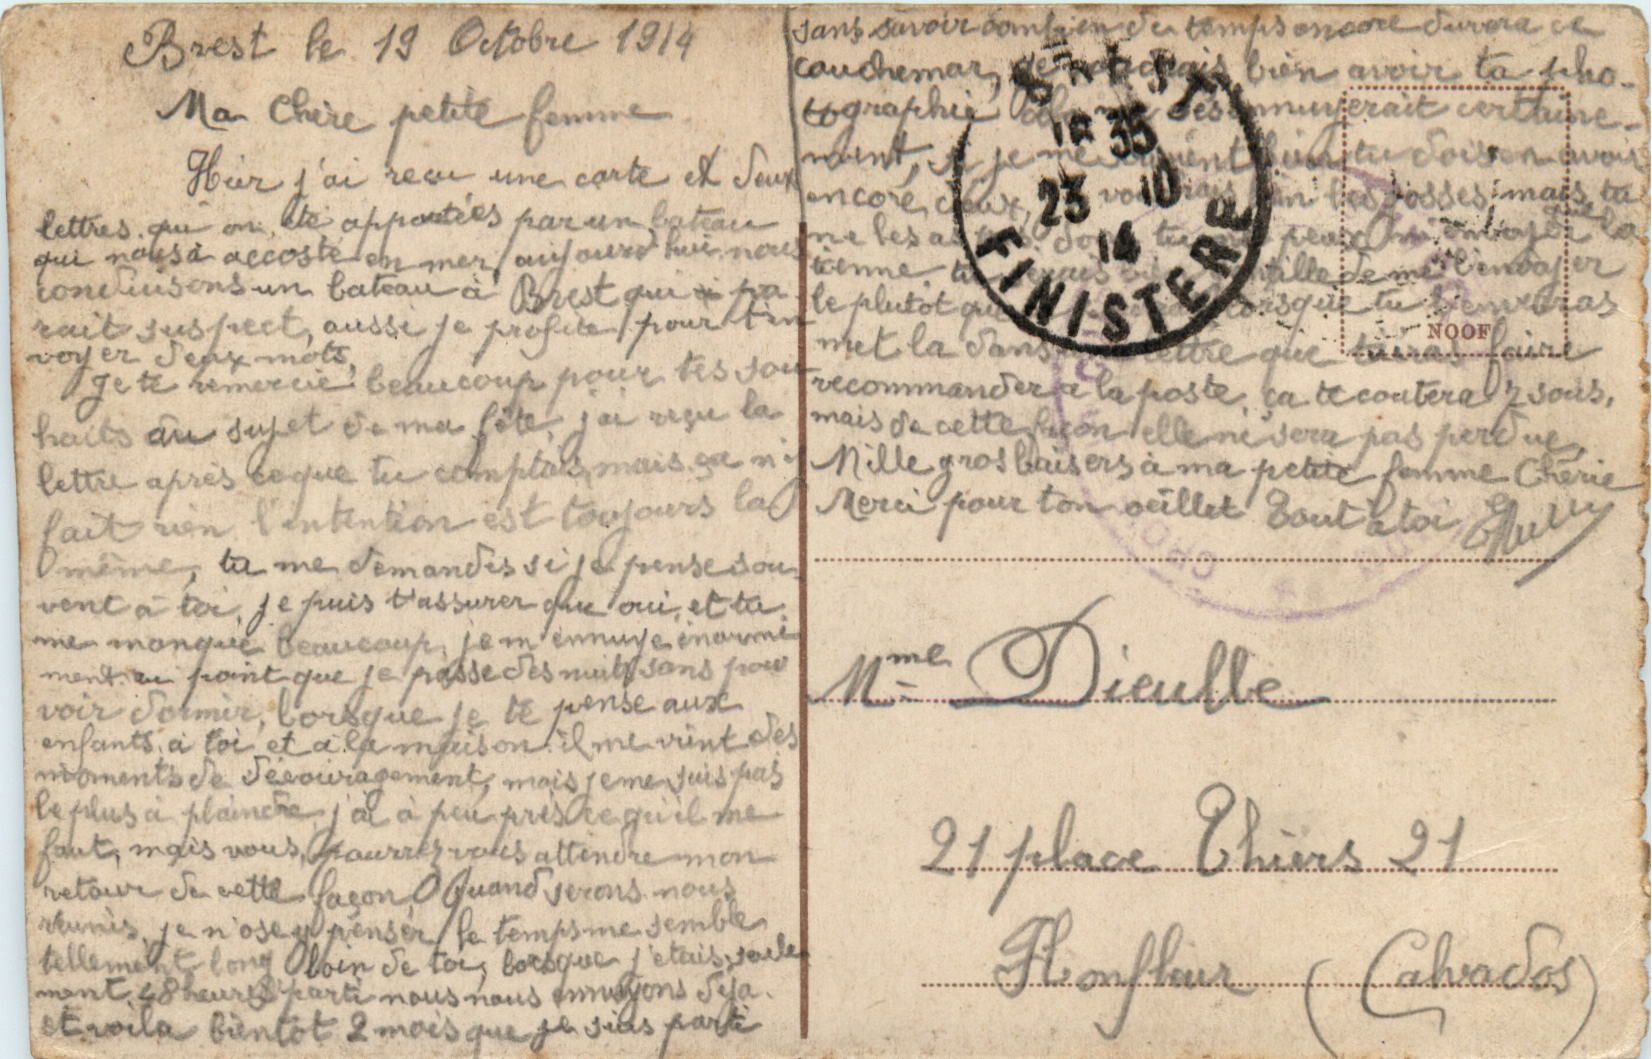 Brest le 19 Octobre 1914
Ma Chère petite femme
Hier j'ai reçu une carte et deux
lettres qui on été apportées par un bateau
qui nous a accosté en mer, aujourd'hui nous
conduisons un bateau à Brest qui pa
rait suspect, aussi je profite pour t'en
voyer deux mots,
Je te remercie beaucoup pour tes sou
haits au sujet de ma fête, j'ai reçu la
lettre après ce que tu comptais, mais ça n'y
fait rien l'intention est toujours la
même, tu me demandes si je pense sou
vent à toi, je puis t'assurer que oui, et tu
me manque beaucoup, je m'ennuye énormé
ment au point que je passe des nuits sans pou
voir dormir, lorsque je te pense aux
enfants à toi et à la maison il me vient des
moments de découragement, mais je ne suis pas
le plus à plaindre j'ai à peu près ce qu'il me
faut, mais vous, pourrez vous attendre mon
retour de cette façon, Quand serons nous
réunis, je n'ose y penser le temps me semble
tellement long loin de toi, lorsque j'étais seule
ment 48 heures parti nous nous ennuyons déjà
et voila bientôt 2 mois que je suis parti
sans savoir combien de temps encore durera ce
cauchemar, je bien avoir ta pho-
tographie désennuyerait certaine-
ment, si je me bien tu dois en avoir
encore deux, les gosses mais tu
ne les as pas tu peux m'envoyer la
tienne de me l'envoyer
le plutôt que lorsque tu l'enverras
met la dans lettre que tu iras faire
recommander à la poste, ça te coutera 7 sous,
mais de cette façon elle ne sera pas perdue,
Mille gros baisers à ma petite femme Chérie
Merci pour ton oeillet Tout à toi
BREST
18 35
23 10
14
FINISTERE
NOOF
Mme Dieulle
21 place Thiers 21
Honfleur (Calvados)